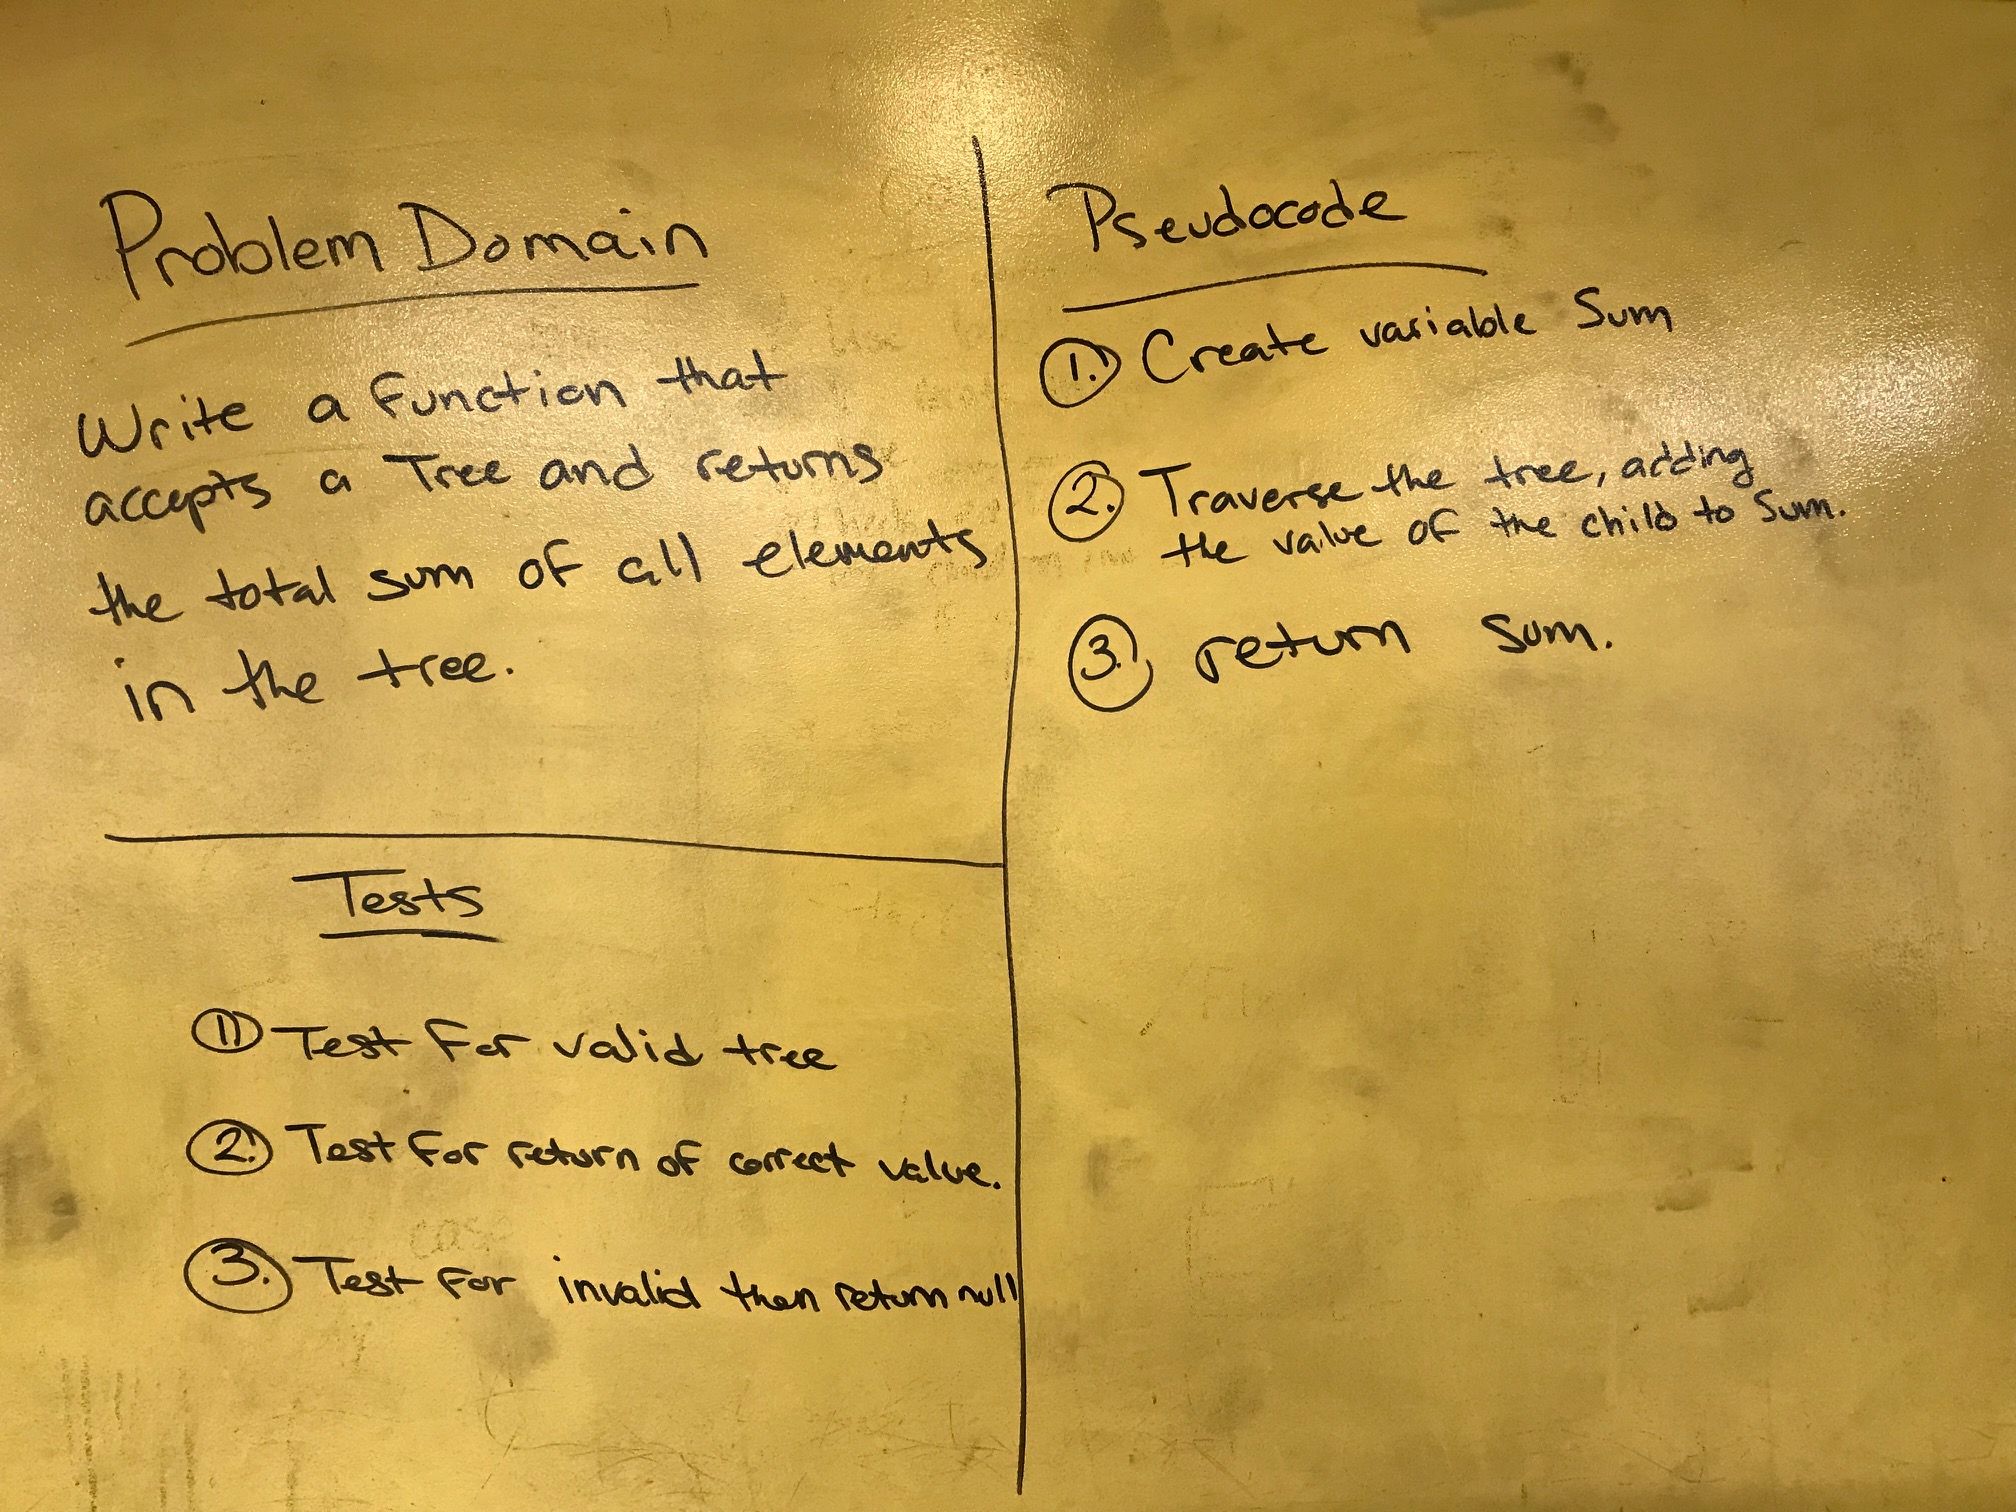 Problem Domain
Write a function that
accepts a Tree and returns
the total sum of all elements
in the tree.
Tests
1) Test for valid tree
2. Test for return of correct value.
3. Test for invalid then return null
Pseudocode
1. Create variable Sum
2. Traverse the tree, adding
the value of the child to Sum.
3. return sum.